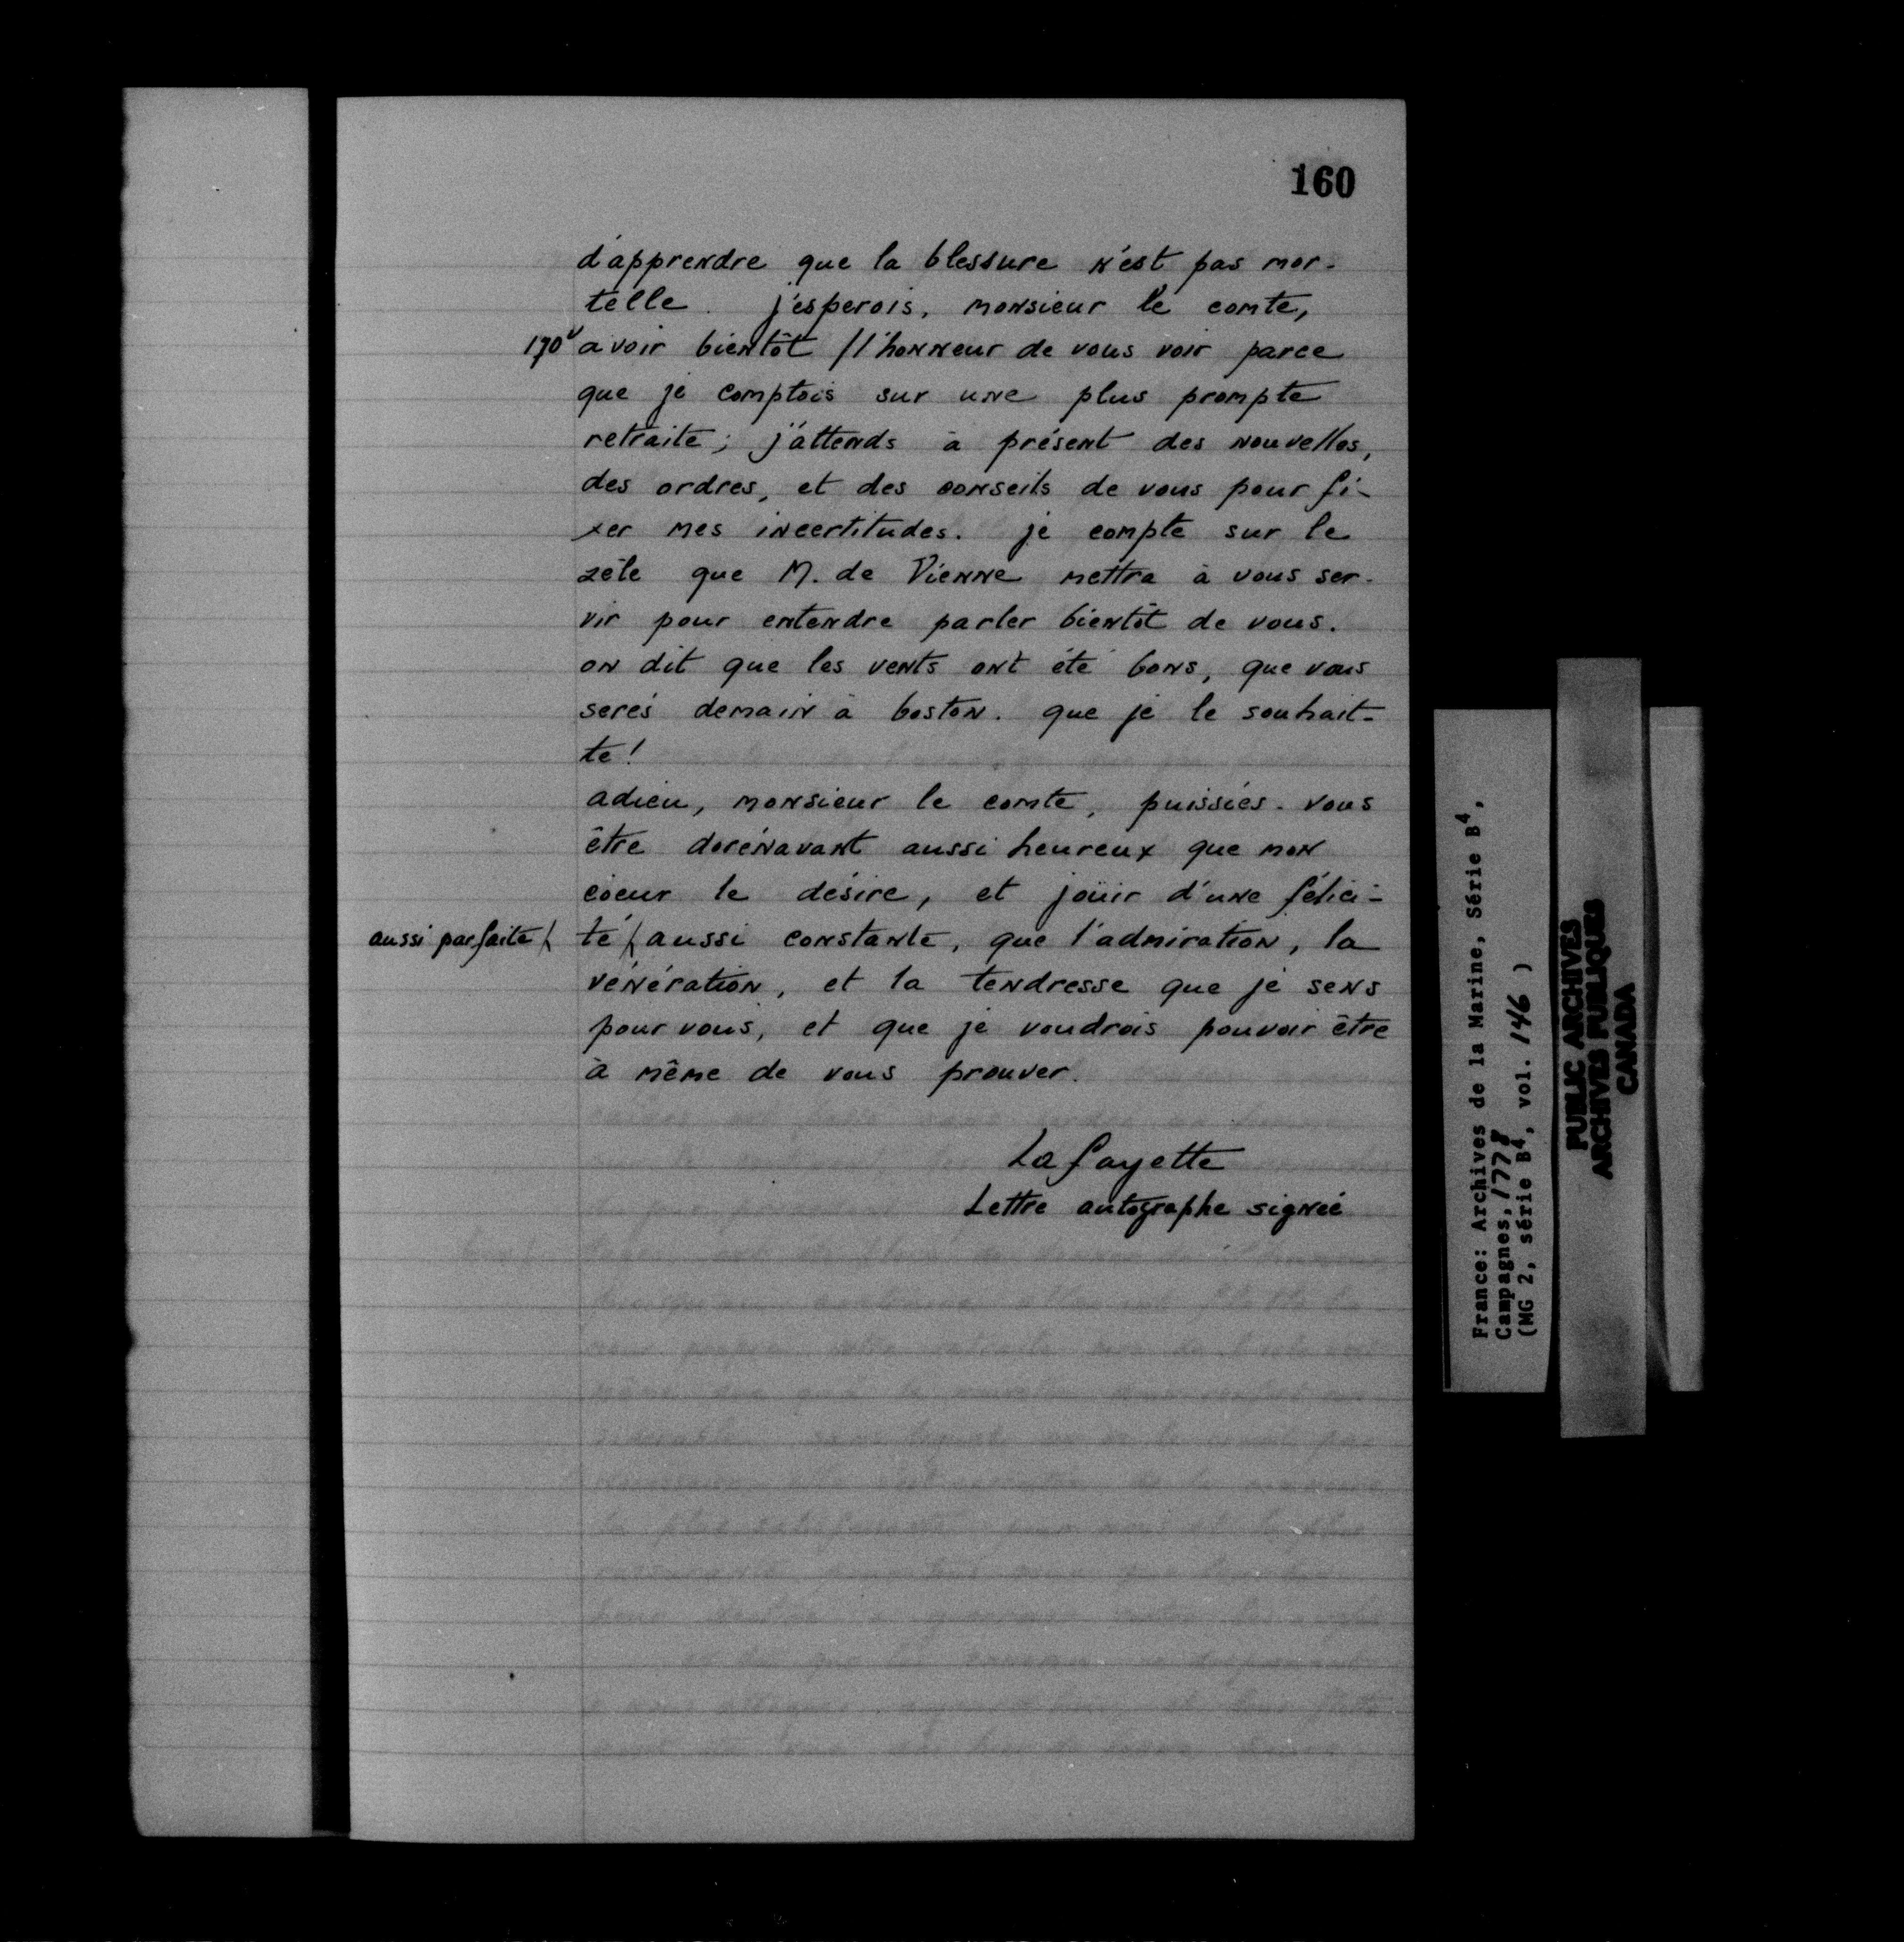 160
d'apprendre que la blessure n'est pas mor-
telle. j'esperois, monsieur le comte,
170v avoir bientôt //l'honneur de vous voir parce
que je comptois sur une plus prompte
retraite; j'attends à présent des nouvelles,
des ordres, et des conseils de vous pour fi-
xer mes incertitudes. je compte sur le
zèle que M. de Vienne mettra à vous ser-
vir pour entendre parler bientôt de vous.
on dit que les vents ont été bons, que vous
serés demain à boston. que je le souhait-
te!
adieu, monsieur le comte, puissiés-vous
être dorénavant aussi heureux que mon
coeur le désire, et joüir d'une félici-
aussi parfaite/ té/aussi constante, que l'admiration, la
vénération, et la tendresse que je sens
pour vous, et que je voudrois pouvoir être
à même de vous prouver.
Lafayette
Lettre autographe signée
France: Archives de la Marine, Série B4,
Campagnes, 1778
(MG 2, série B4, vol. 146 )
PUBLIC ARCHIVES
ARCHIVES PUBLIQUES
CANADA